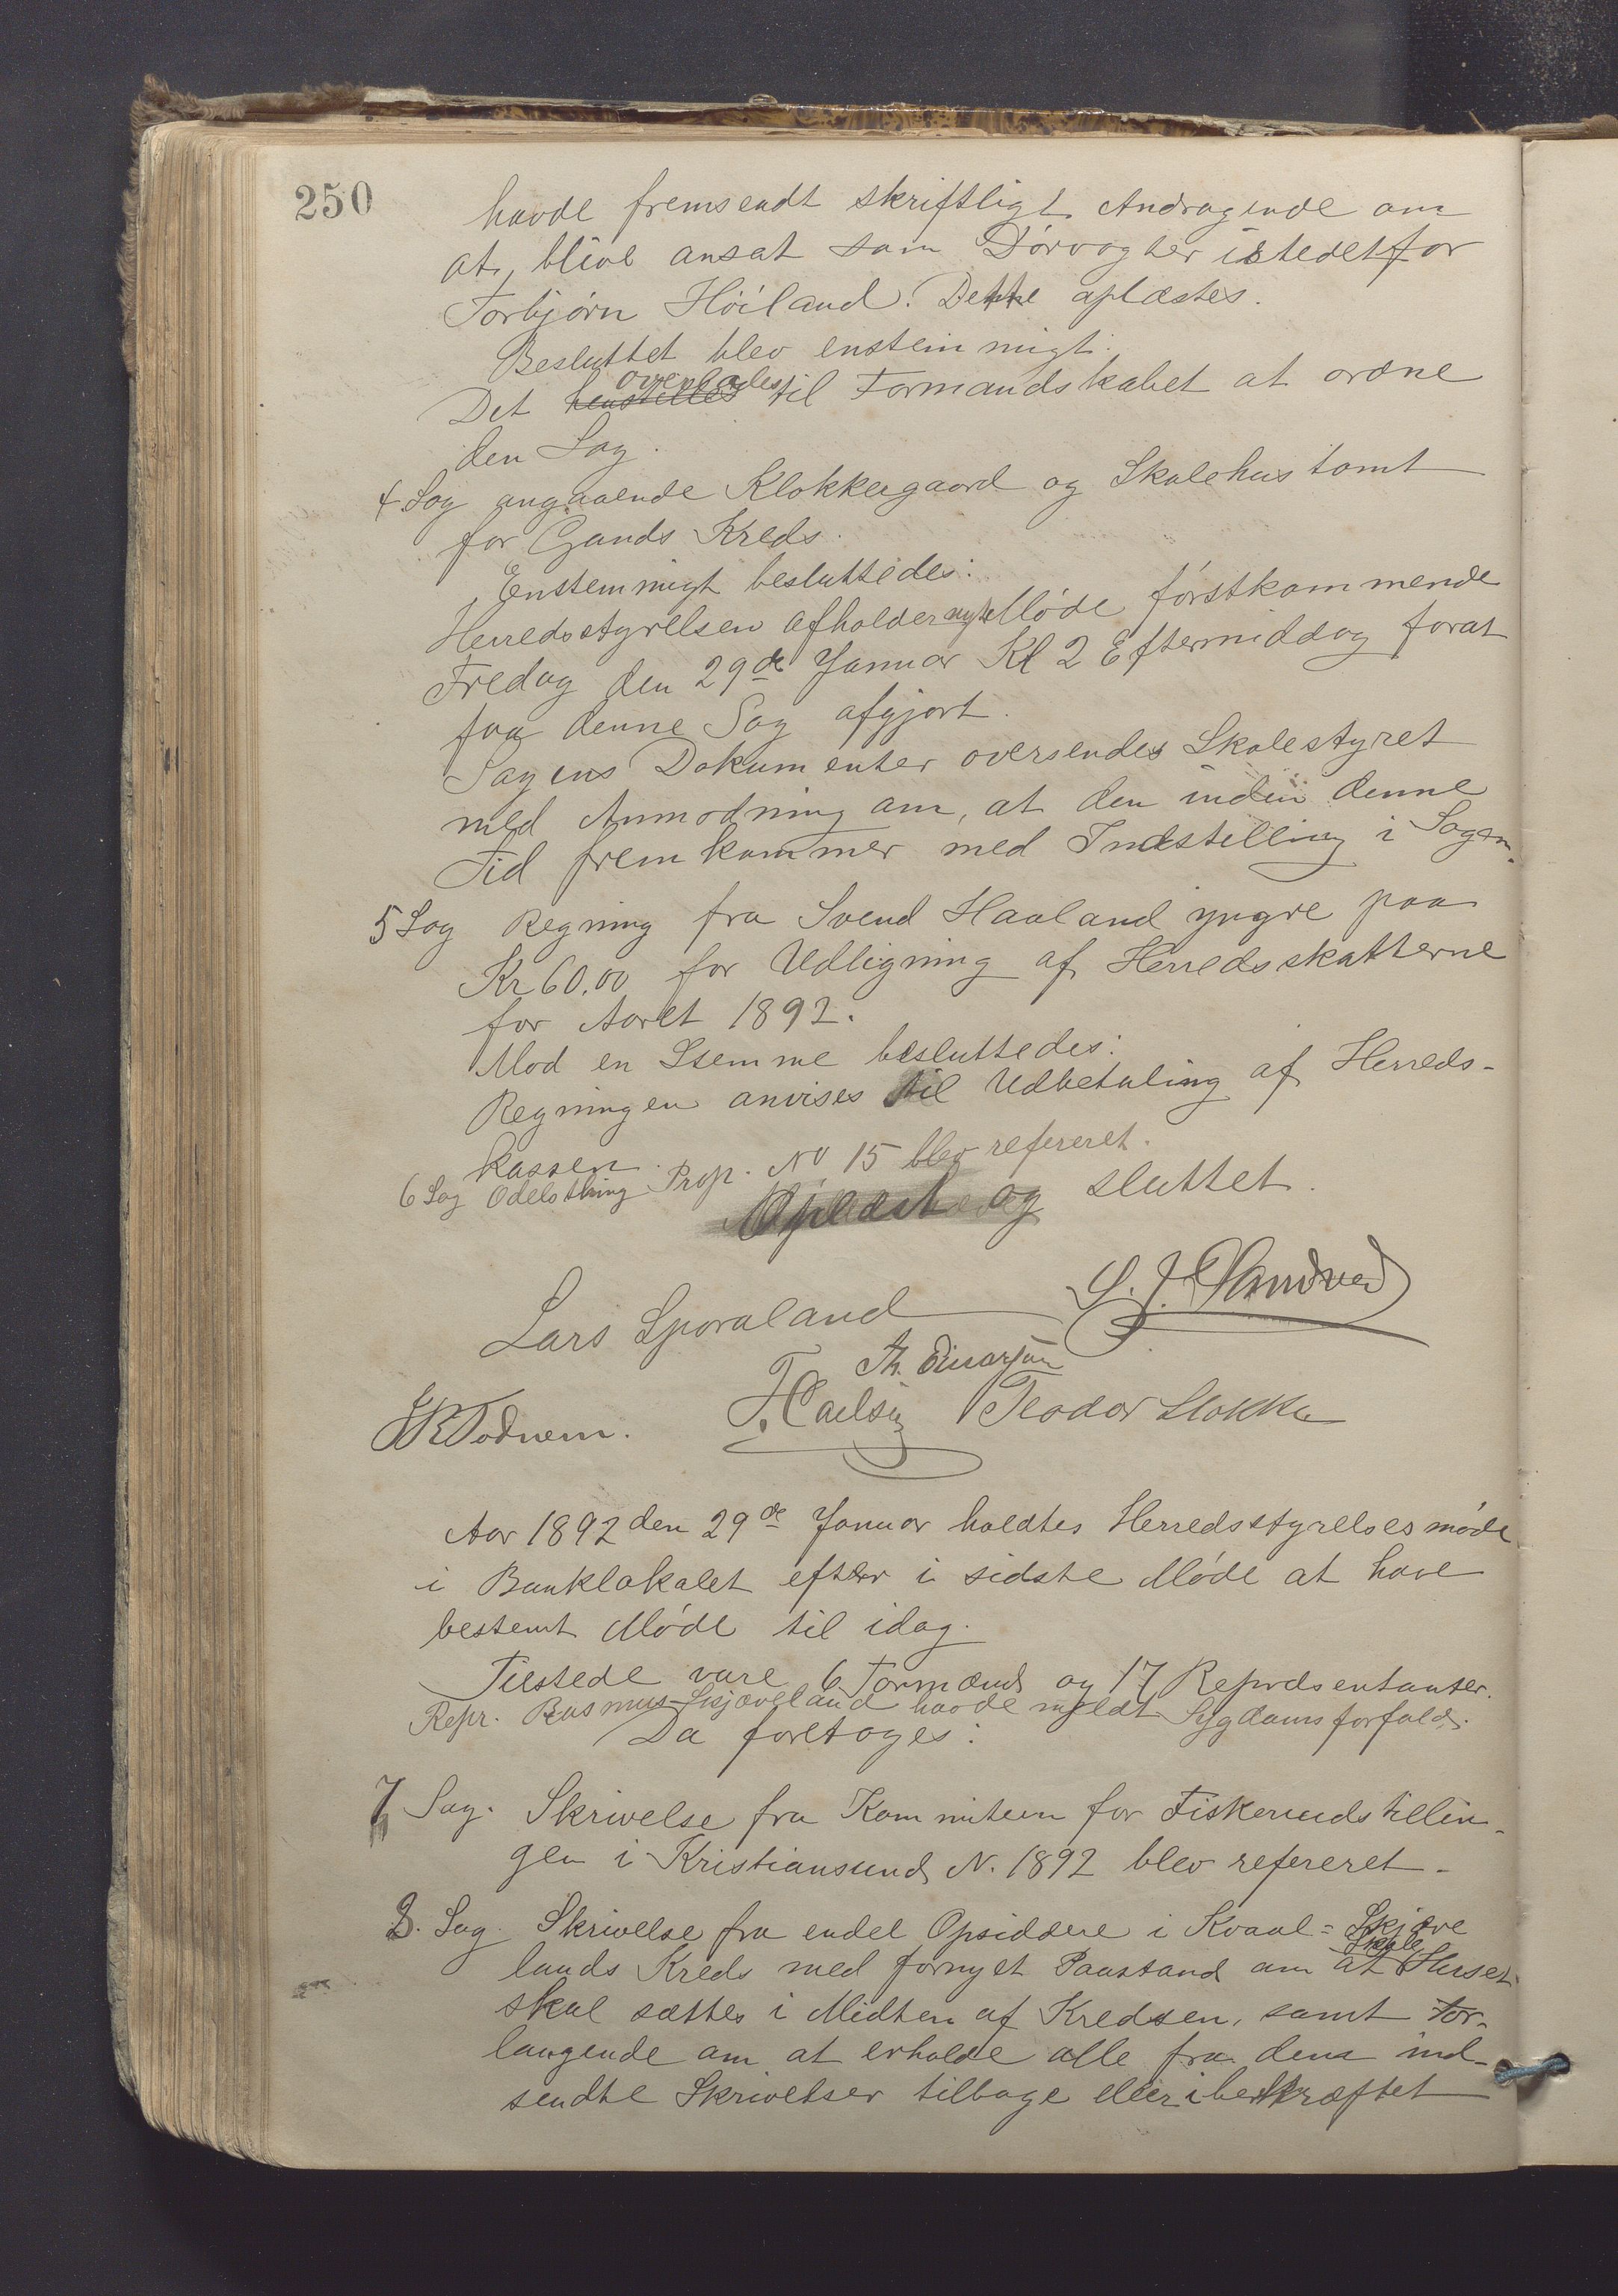 250
havde fremsendt skriftligt Andragende om
at blive ansat som Dørvogter istedetfor
Torbjørn Höiland. Dette oplæstes.
Besluttet blev enstemmigt:
overlades
Det henstilles til Formandskabet at ordne
den Sag.
4 Sag angaaende Klokkergaard og Skolehustomt
for Gands Kreds.
Enstemmigt besluttedes:
Herredsstyrelsen afholder nyt Møde førstkommende
Fredag den 29de Januar Kl 2 Eftermiddag forat
faa denne Sag afgjort.
Sagens Dokumenter oversendes Skolestyret
med Anmodning om, at den inden denne
Tid fremkommer med Indstilling i Sagen.
5 Sag Regning fra Svend Haaland yngre paa
Kr 60.00 for Udligning af Herredsskatterne
for Aaret 1892.
Mod en Stemme besluttedes:
Regningen anvises til Udbetaling af Herreds-
kassen.
6 Sag Odelsthing Prop. No 15 blev refereret.
Oplæst og sluttet.
Lars Sporaland
S. J. Sandved
Th. Einarsen
JRTodnem.
T. Carlsen
Teodor Stokka
Aar 1892 den 29de Januar holdtes Herredsstyrelsesmøde
i Banklokalet efter i sidste Møde at have
bestemt Møde til idag.
Tilstede vare 6 Formænd og 17 Repræsentanter.
Repr. Rasmus Skjæveland havde meldt Sygdomsforfald.
Da foretoges:
7 Sag. Skrivelse fra Kommiteen for Fiskeriudstillin-
gen i Kristiansund N. 1892 blev refereret.
8. Sag Skrivelse fra endel Opsiddere i Kvaal=Skjæve
Skole
lands Kreds med fornyet Paastand om at Huset
skal sættes i Midten af Kredsen, samt For-
langende om at erholde alle fra dem ind-
sendte Skrivelser tilbage eller i bekræftet